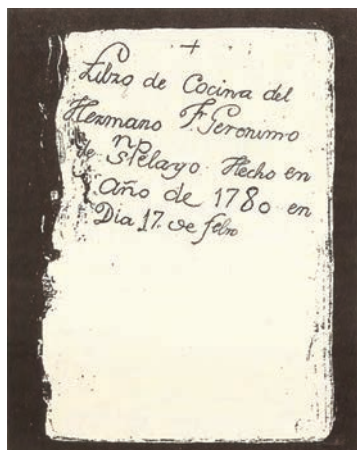 +
Libro de Cocina del
Hermano F. Geronimo
de Sn Pelayo Hecho en
año de 1780 en
Dia 17. de febro